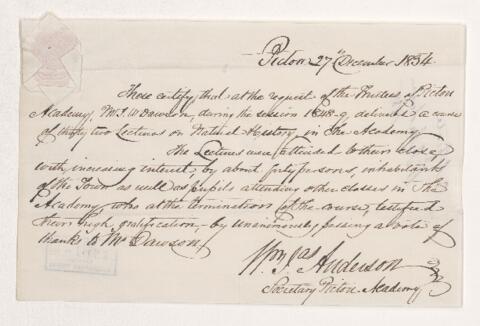 Pictou 27th December 1854.
These certify, that at the request of the Trustees of Pictou
Academy, Mr J. W. Dawson, during the session 1848-9, delivered a course
of thirty two Lectures on Natural History, in the Academy.
The Lectures were attended to their close
with increasing interest, by about forty persons, inhabitants
of the Town as well as pupils attending other classes in The
Academy, who at the termination of the course, testified
their high gratification - by unanimously passing a vote of
thanks to Mr Dawson.
Anderson
Secretary Pictou Academy